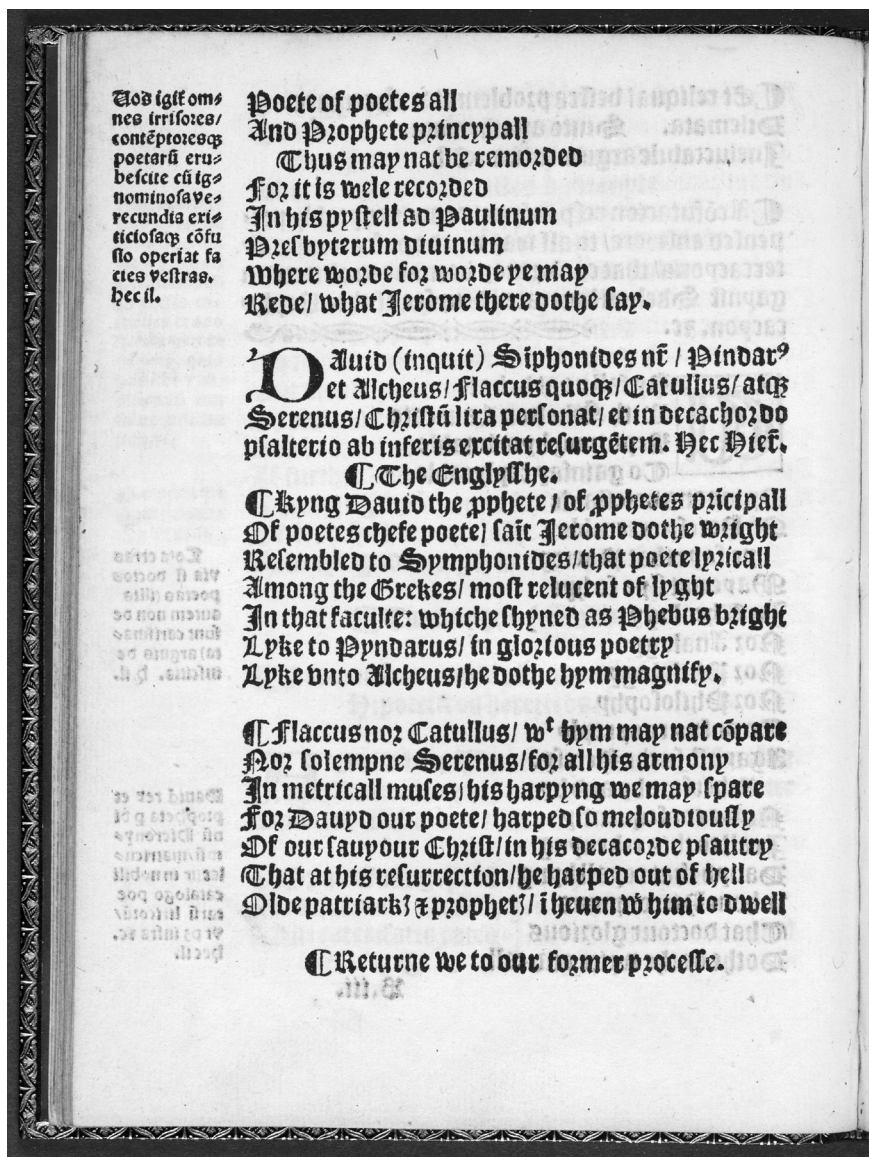 Uos igit̃ om⸗
nes irrisores/
contēptoresqꝫ
poetarū eru⸗
bescite cū ig⸗
nominosa ve⸗
recundia eri⸗
ticiosaqꝫ cōfu
sio operiat fa
cies vestras.
hec il.
Poete of poetes all
And Prophete pryncypall
Thus may nat be remorded
For it is wele recorded
In his pystell ad Paulinum
Presbyterum diuinum
Where worde for worde ye may
Rede/ what Jerome there dothe say.
DAuid (inquit) Siphonides nr̃ / Pindarꝰ
et Alcheus/ Flaccus quoqꝫ/ Catullus/ atqꝫ
Serenus/ Christū lira personat/ et in decachordo
psalterio ab inferis excitat resurgētem. Hec Hier̃.
¶ The Englysshe.
¶ Kyng Dauid the ꝓphete / of ꝓphetes prīcipall
Of poetes chefe poete/ saīt Jerome dothe wright
Resembled to Symphonides/ that poete lyricall
Among the Grekes/ most relucent of lyght
In that faculte: whiche shyned as Phebus bright
Lyke to Pyndarus/ in glorious poetry
Lyke vnto Alcheus/ he dothe hym magnify.
¶ Flaccus nor Catullus/ wᵗ hym may nat cōpare
Nor solempne Serenus/ for all his armony
In metricall muses/ his harpyng we may spare
For Dauyd our poete/ harped so meloudiously
Of our sauyour Christ/ in his decacorde psautry
That at his resurrection/ he harped out of hell
Olde patriarkꝫ ⁊ prophetꝫ/ ī heuen wᵗ him to dwell
¶ Returne we to our former processe.